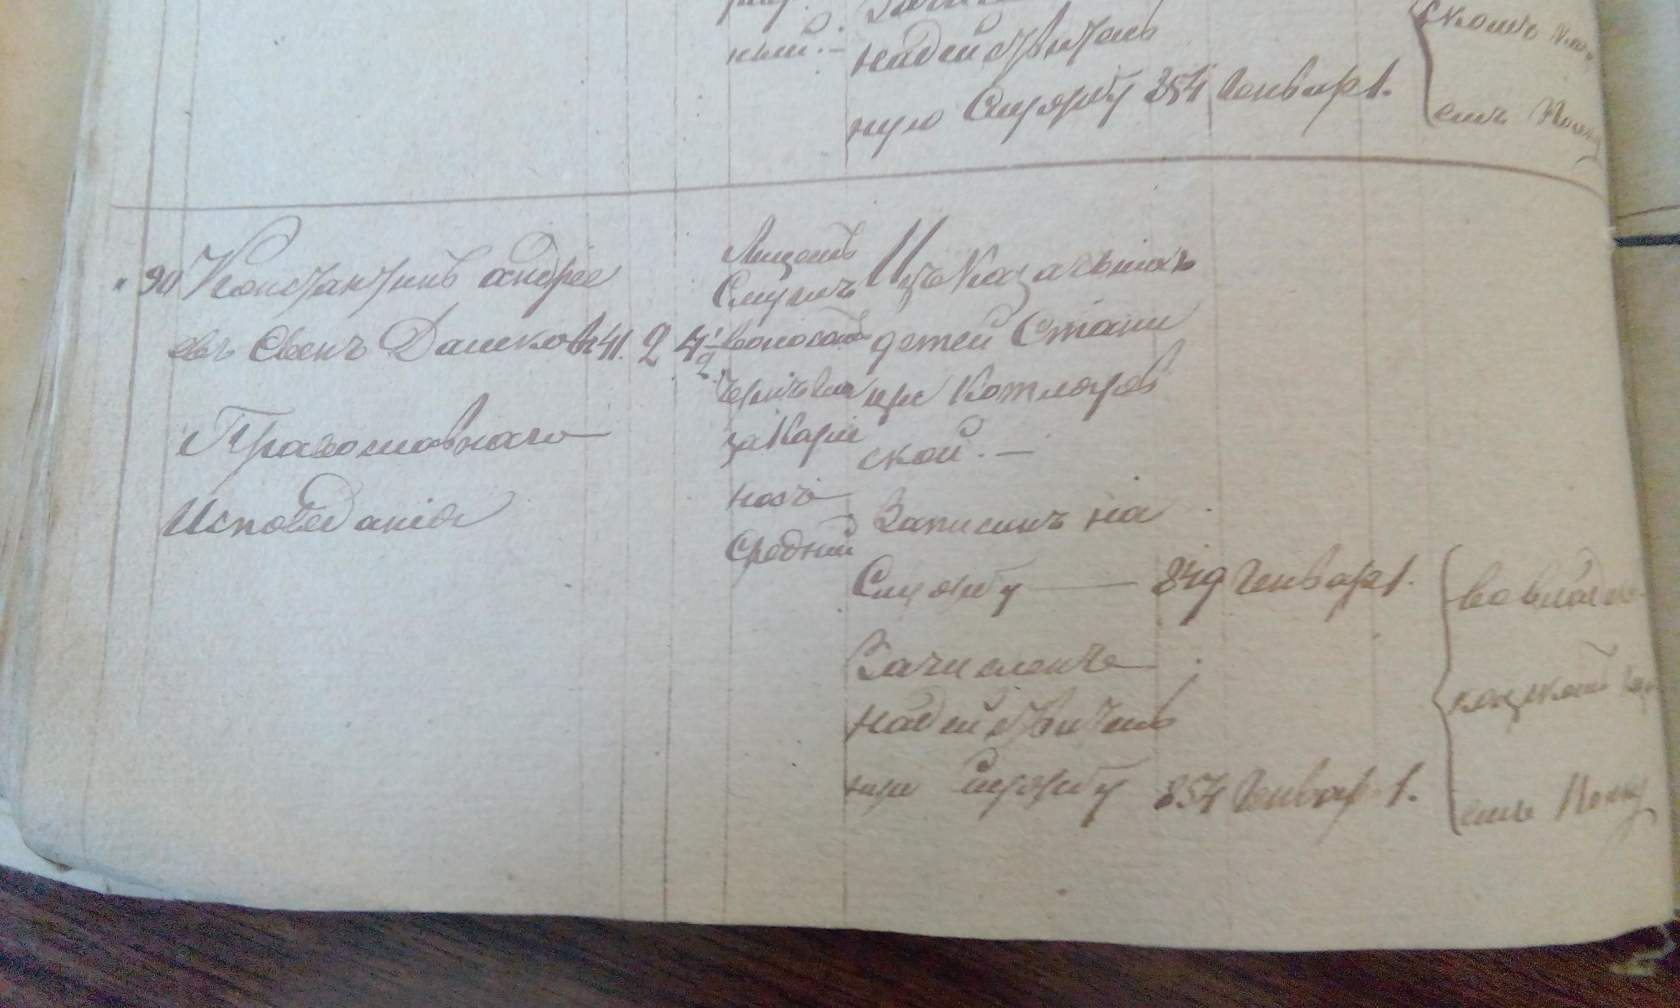 ный.-
надействитель
ную Службу 854 Генвар 1.
скомъ
емъ Полку
90 Константинъ андре
евъ Сынъ Дашковъ 41. 2 4 1/2
Православнаго
Исповеданія
Лицемъ
Смуглъ
волосом
глаза Кари
носъ
Средний
Изъ Казачьихъ
детей Стани
цы Котляров
ской.-
Записанъ на
Службу — 849 Генвар 1.
Зачисленъ
надействитель
ную Службу 854 Генвар. 1.
во влади
кавказском
емъ Полку